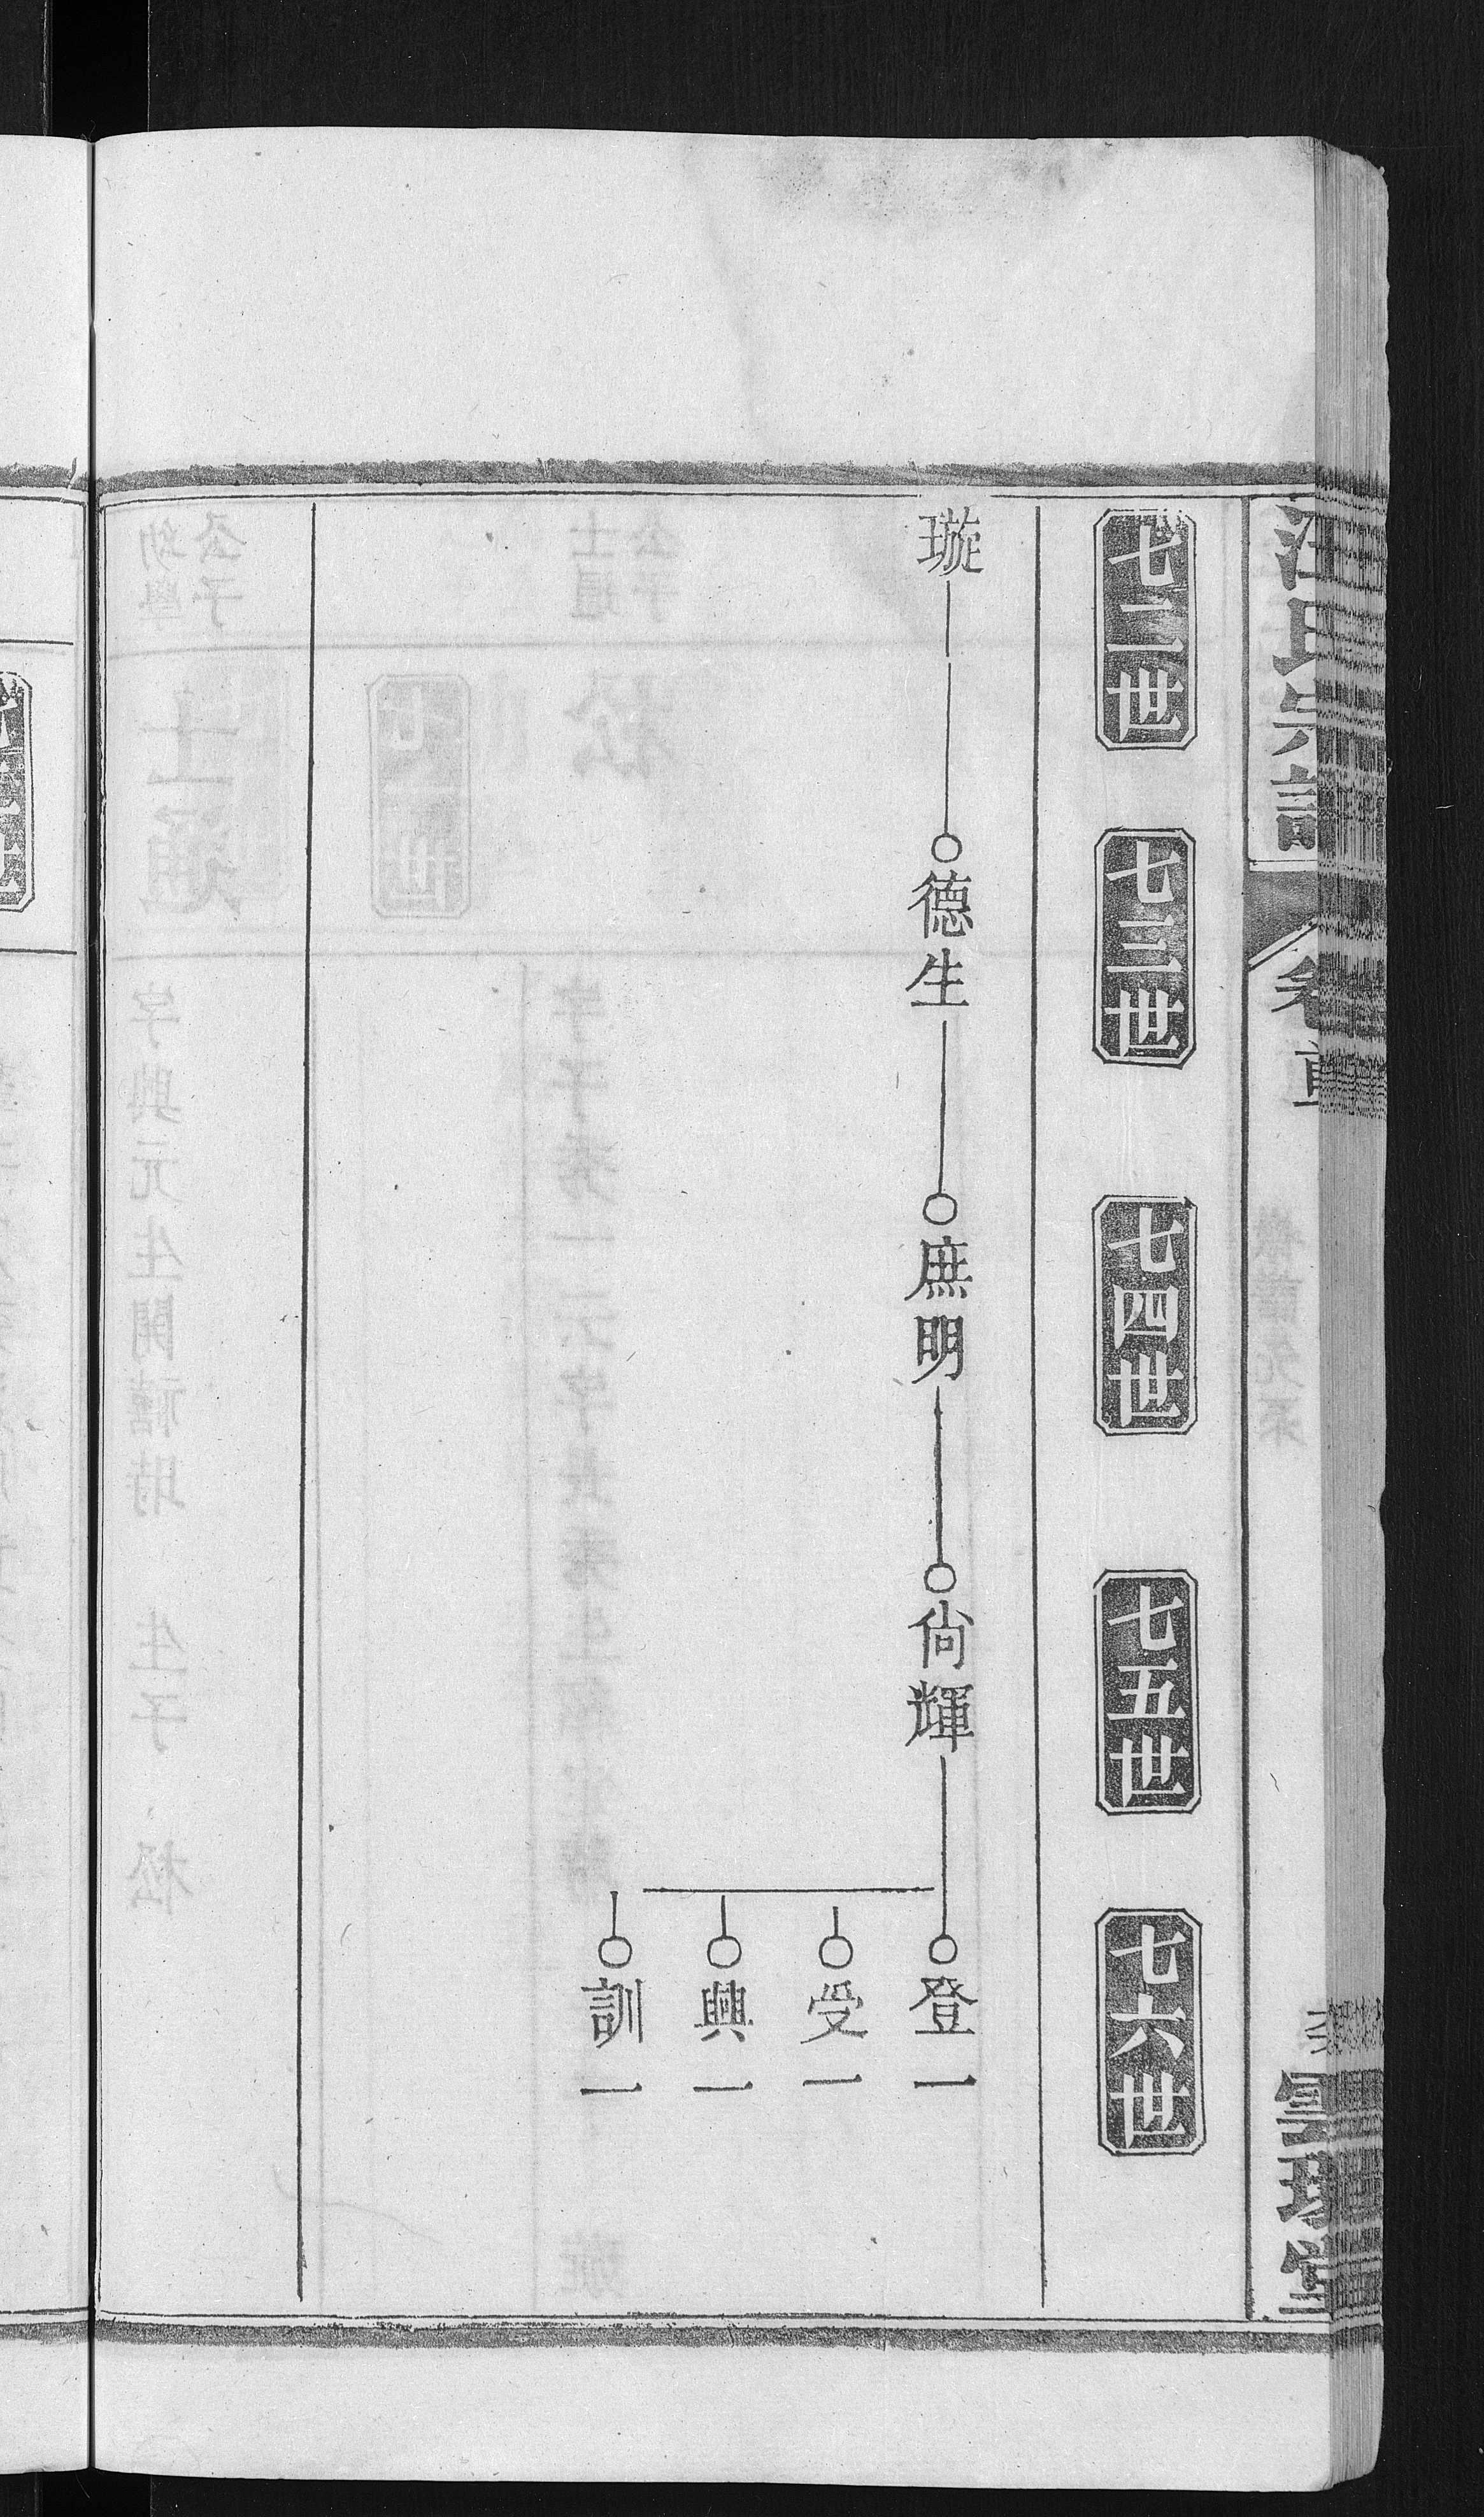 汪氏宗譜
卷首
三
七二世
七三世
七四世
七五世
七六世
璇
德生
庶明
尙輝
登一
受一
興一
訓一